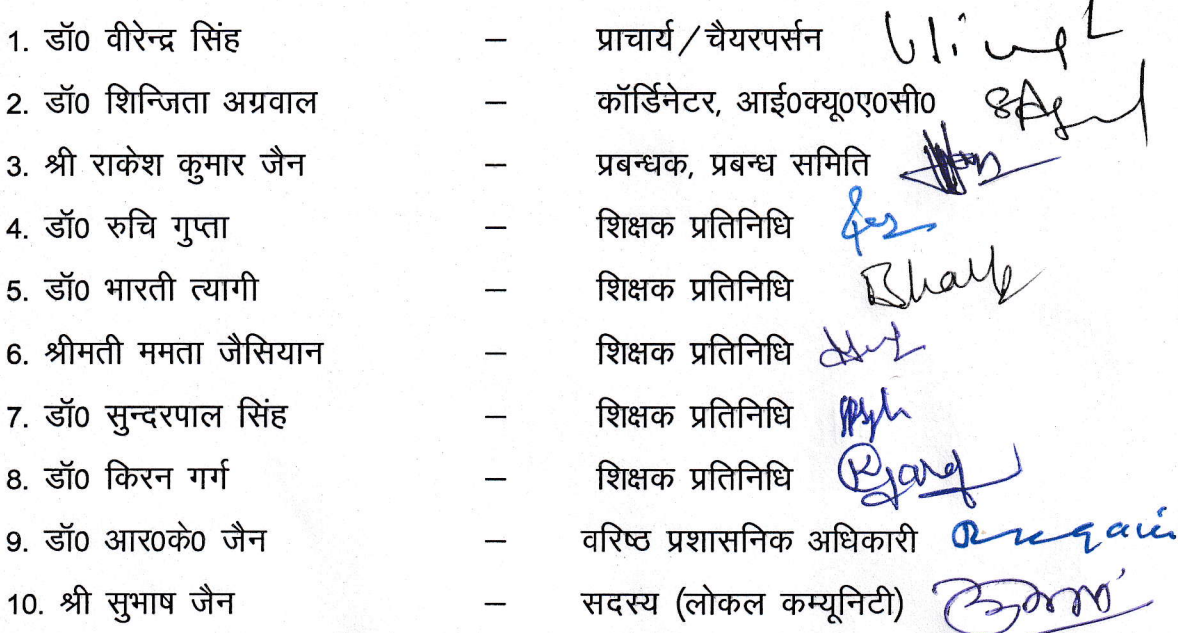 1. डॉ0 वीरेन्द्र सिंह – प्राचार्य / चैयरपर्सन
2. डॉ0 शिन्जिता अग्रवाल – कॉर्डिनेटर, आई0क्यू0ए0सी0
3. श्री राकेश कुमार जैन – प्रबन्धक, प्रबन्ध समिति
4. डॉ0 रुचि गुप्ता – शिक्षक प्रतिनिधि
5. डॉ0 भारती त्यागी – शिक्षक प्रतिनिधि
6. श्रीमती ममता जैसियान – शिक्षक प्रतिनिधि
7. डॉ0 सुन्दरपाल सिंह – शिक्षक प्रतिनिधि
8. डॉ0 किरन गर्ग – शिक्षक प्रतिनिधि KGarg
9. डॉ0 आर0के0 जैन – वरिष्ठ प्रशासनिक अधिकारी
10. श्री सुभाष जैन – सदस्य (लोकल कम्यूनिटी)